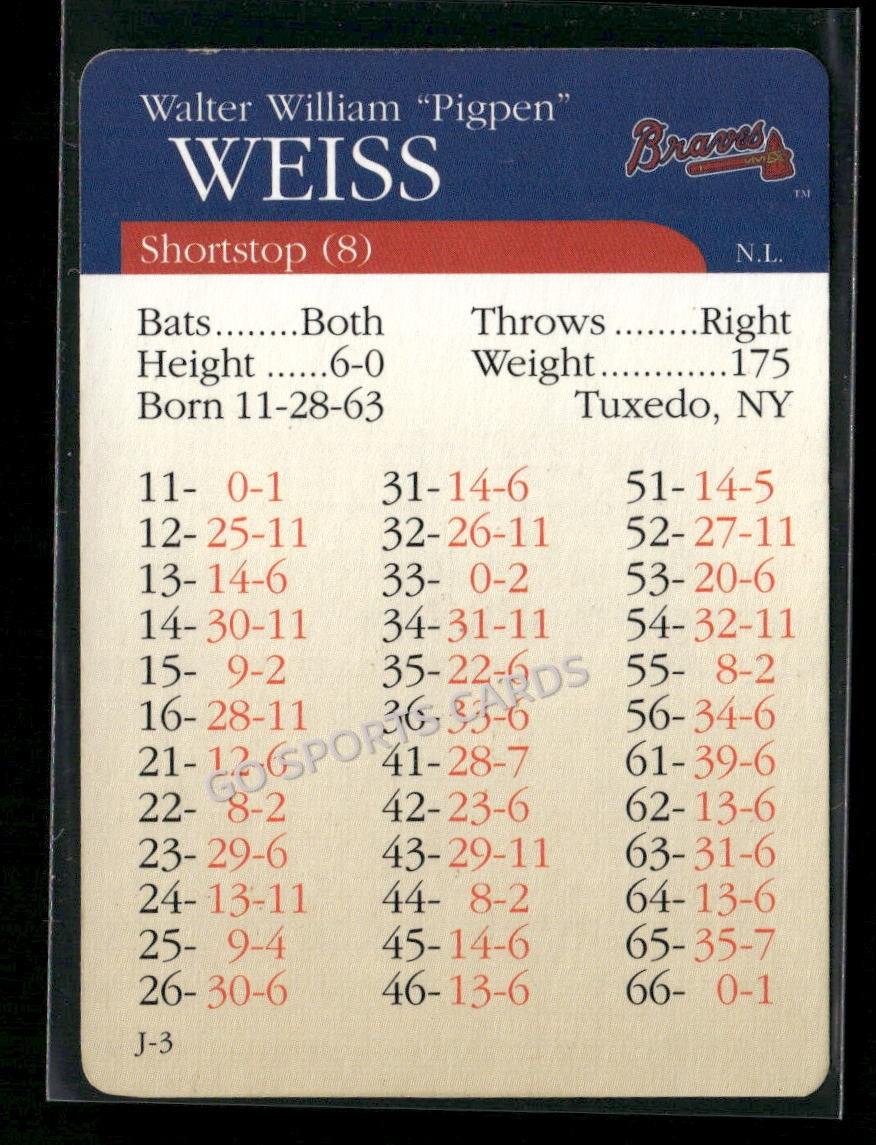 Walter William “Pigpen”
WEISS
Braves
TM
Shortstop (8)
N.L.
Bats........Both Throws ........Right
Height ......6-0 Weight............175
Born 11-28-63 Tuxedo, NY
11- 0-1 31-14-6 51-14-5
12-25-11 32-26-11 52-27-11
13-14-6 33- 0-2 53-20-6
14-30-11 34-31-11 54-32-11
15- 9-2 35-22-6 55- 8-2
16-28-11 36-33-6 56-34-6
21-12-6 41-28-7 61-39-6
22- 8-2 42-23-6 62-13-6
23-29-6 43-29-11 63-31-6
24-13-11 44- 8-2 64-13-6
25- 9-4 45-14-6 65-35-7
26-30-6 46-13-6 66- 0-1
J-3
GO SPORTS CARDS